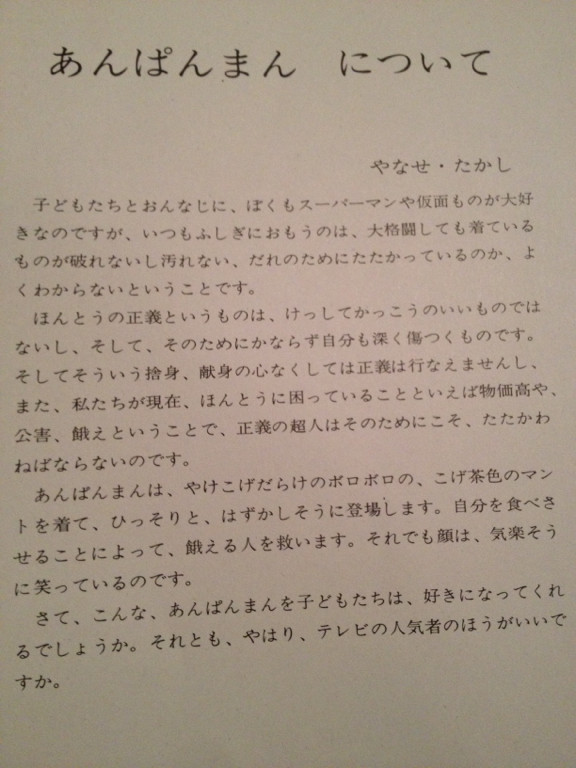 あんぱんまん について
やなせ・たかし
子どもたちとおんなじに、ぼくもスーパーマンや仮面ものが大好
きなのですが、いつもふしぎにおもうのは、大格闘しても着ている
ものが破れないし汚れない、だれのためにたたかっているのか、よ
くわからないということです。
ほんとうの正義というものは、けっしてかっこうのいいものでは
ないし、そして、そのためにかならず自分も深く傷つくものです。
そしてそういう捨身、献身の心なくしては正義は行なえませんし、
また、私たちが現在、ほんとうに困っていることといえば物価高や、
公害、餓えということで、正義の超人はそのためにこそ、たたかわ
ねばならないのです。
あんぱんまんは、やけこげだらけのボロボロの、こげ茶色のマン
トを着て、ひっそりと、はずかしそうに登場します。自分を食べさ
せることによって、餓える人を救います。それでも顔は、気楽そう
に笑っているのです。
さて、こんな、あんぱんまんを子どもたちは、好きになってくれ
るでしょうか。それとも、やはり、テレビの人気者のほうがいいで
すか。